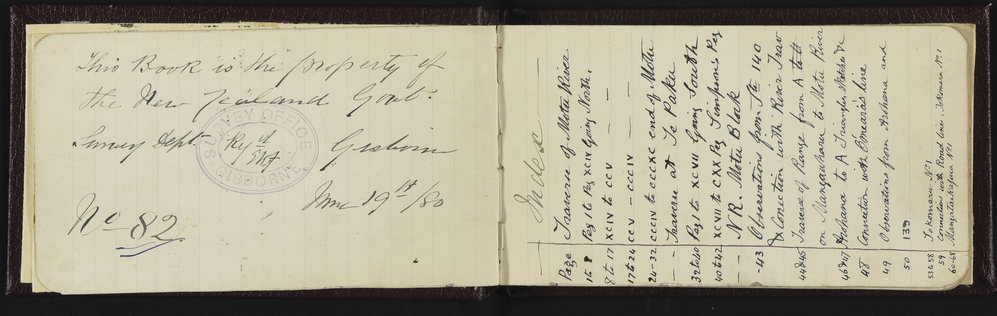 This Book is the property of
the New Zealand Govt.
Survey Dept. Gisborne
SURVEY OFFICE
GISBORNE
June 19th /80
No 82
Index
Page Traverse of Motu River
1 to 8 Peg I to Peg XCIV Going North.
8 to 17 XCIV to CCV — —
17 to 24 CCV — CCCIV — —
24-32 CCCIV to CCCXC end of Motu
— — Traverse at Te Paka
32 to 40 Peg I to XCVII Going South
40 to 42 XCVII to CXX Peg Simpson's Peg
— — N.R. Motu Block
-43 Observations from Stn 140
& Conection with River Trav
44 & 45 Traverse of Range from A to
on Mangawharu to Motu River
46 & 47 Arohana to A Triangles, Sketch &c
48 Connection with O'Meara's line
49 Observations from Arohana and
50 139
53 & 58 Tokomaru No 1
59 Connection with Road line, Tokomaru No 1
60-65 No 1